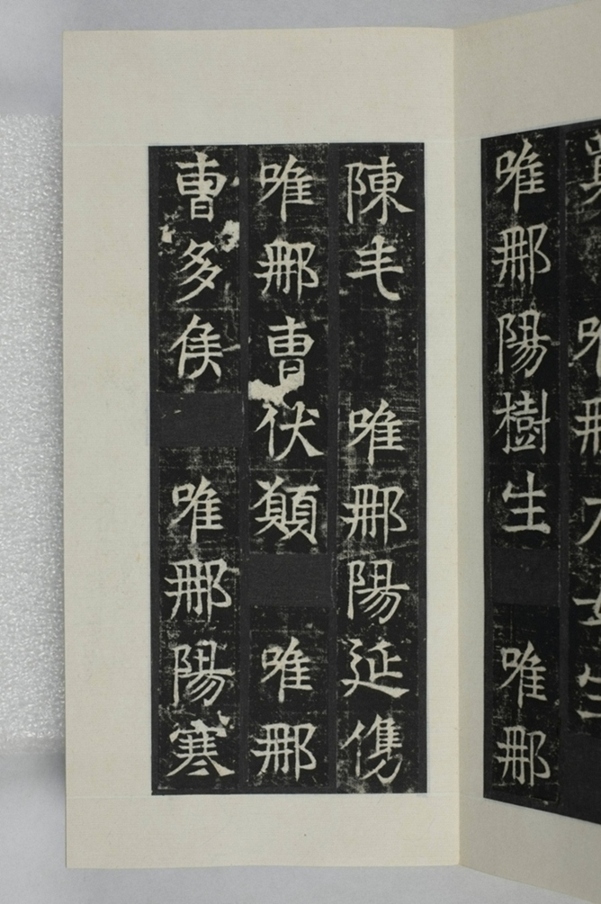 唯那
唯那陽樹生 唯那
陳毛 唯那陽延儁
唯那曹伏顛 唯那
曹多侯 唯那陽寒